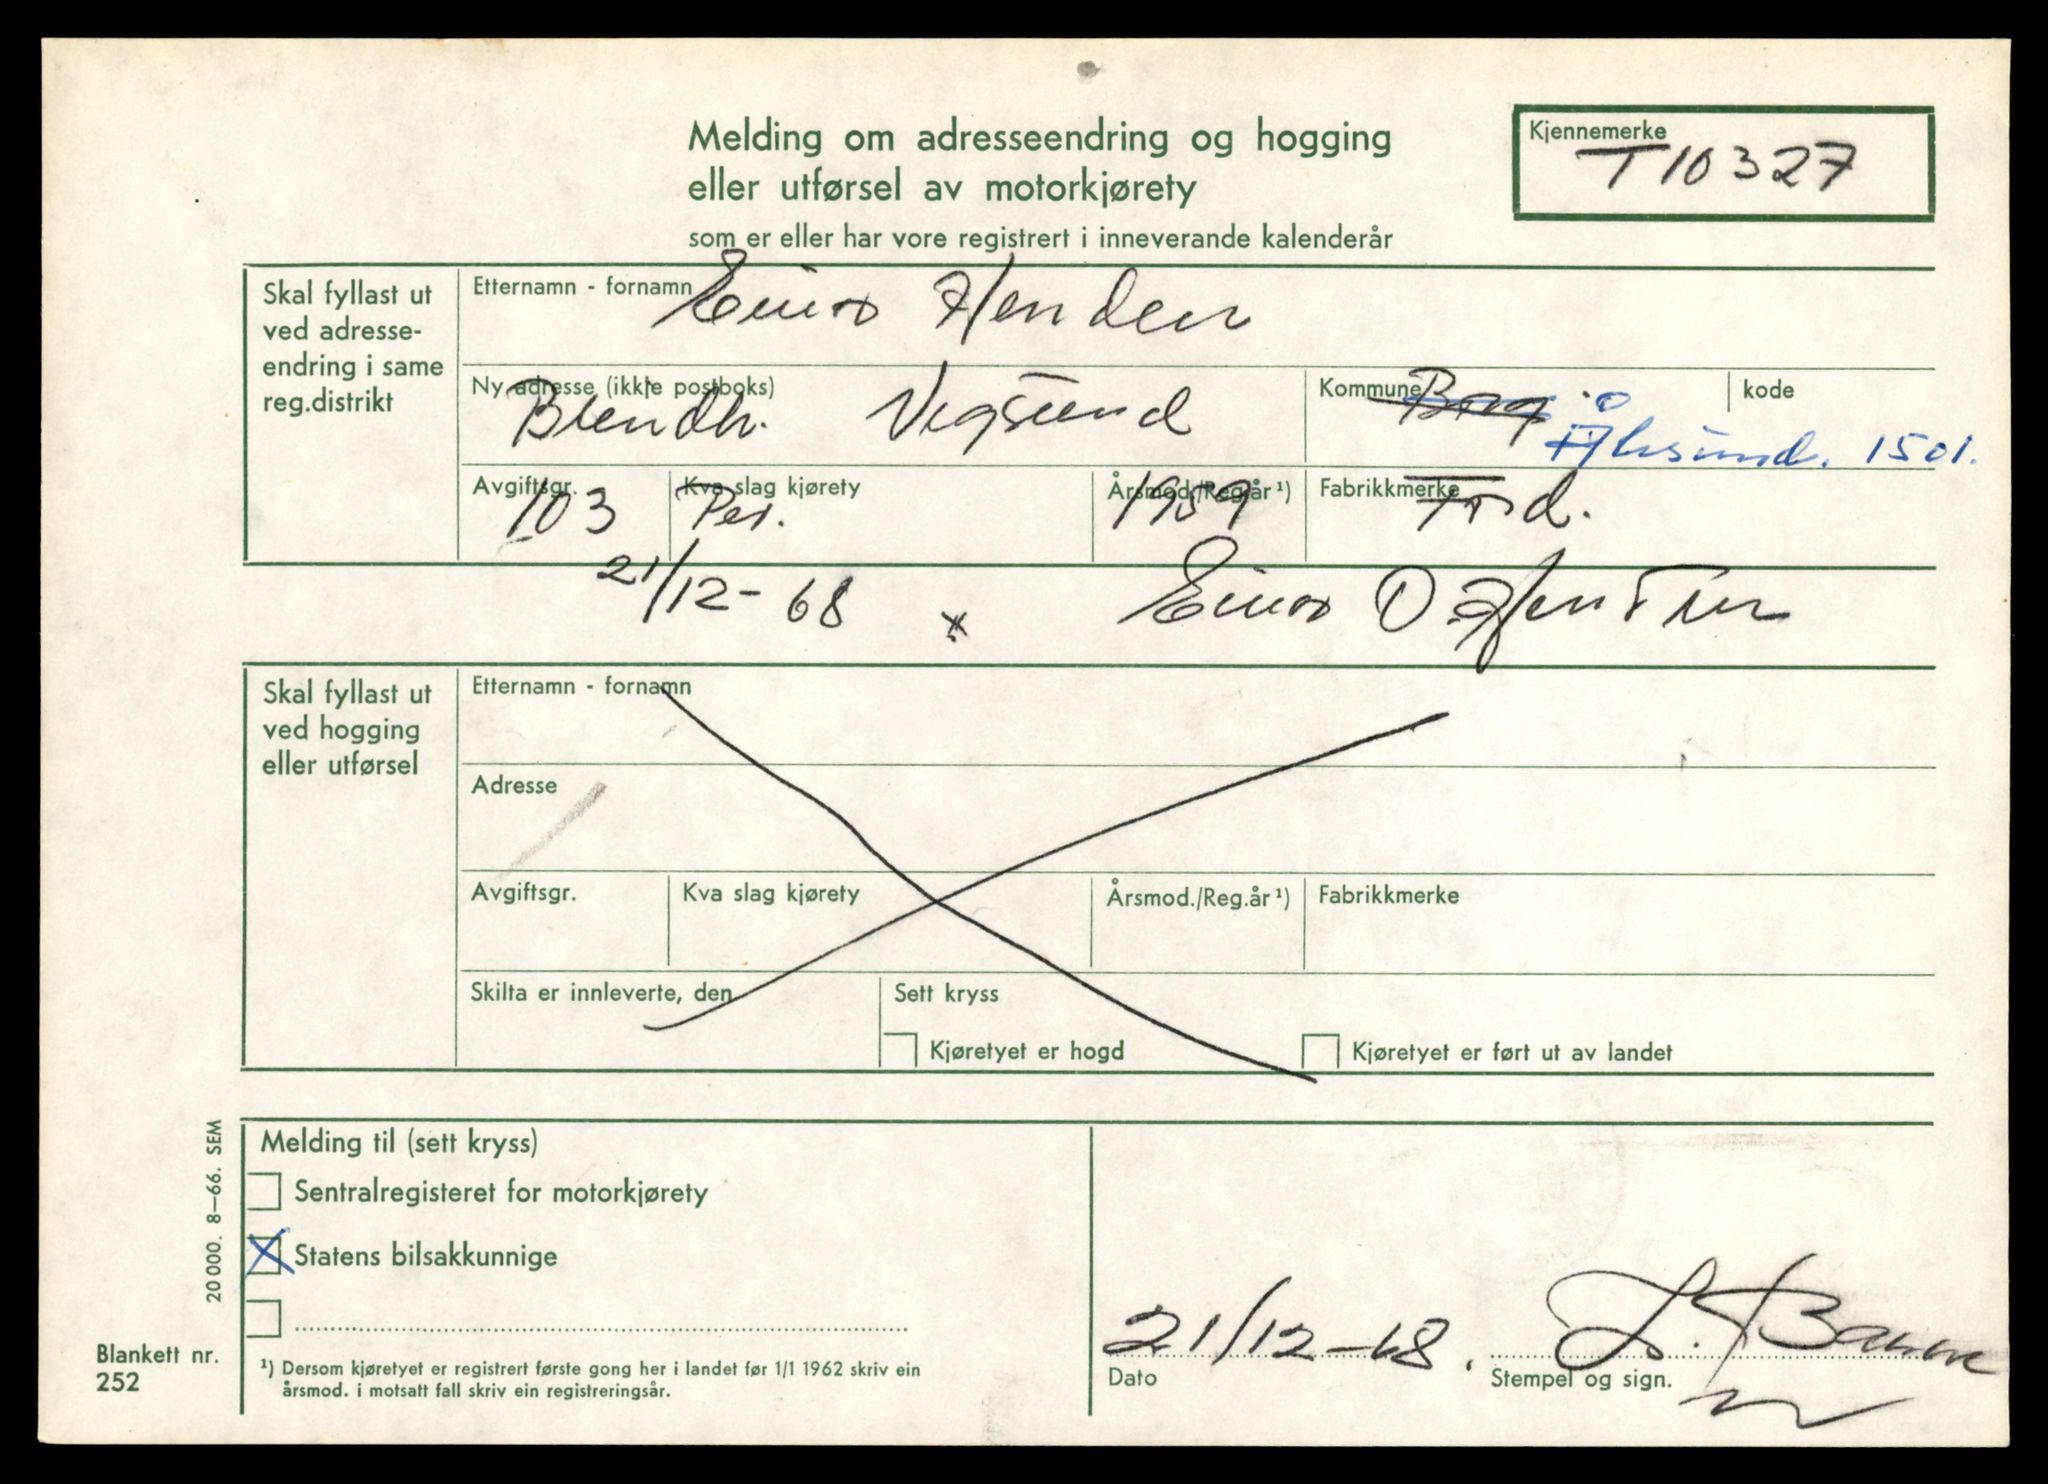 Melding om adresseendring og hogging
eller utførsel av motorkjørety
som er eller har vore registrert i inneverande kalenderår
Kjennemerke
T 10327
Skal fyllast ut
ved adresse-
endring i same
reg.distrikt
Etternamn - fornamn
Einar Henden
Ny adresse (ikkje postboks)
Blendh. Vegsund
Kommune
kode
Ålesund. 1501.
Avgiftsgr.
103
Kva slag kjørety
Per.
Årsmod./Reg.år ¹)
1959
Fabrikkmerke
Ford.
21/12-68 x Einar O Henden
Skal fyllast ut
ved hogging
eller utførsel
Etternamn - fornamn
Adresse
Avgiftsgr.
Kva slag kjørety
Årsmod./Reg.år ¹)
Fabrikkmerke
Skilta er innleverte, den
Sett kryss
Kjøretyet er hogd
Kjøretyet er ført ut av landet
Melding til (sett kryss)
Sentralregisteret for motorkjørety
Statens bilsakkunnige
¹) Dersom kjøretyet er registrert første gong her i landet før 1/1 1962 skriv ein
årsmod. i motsatt fall skriv ein registreringsår.
21/12-68.
Dato
Stempel og sign.
20 000. 8—66. SEM
Blankett nr.
252